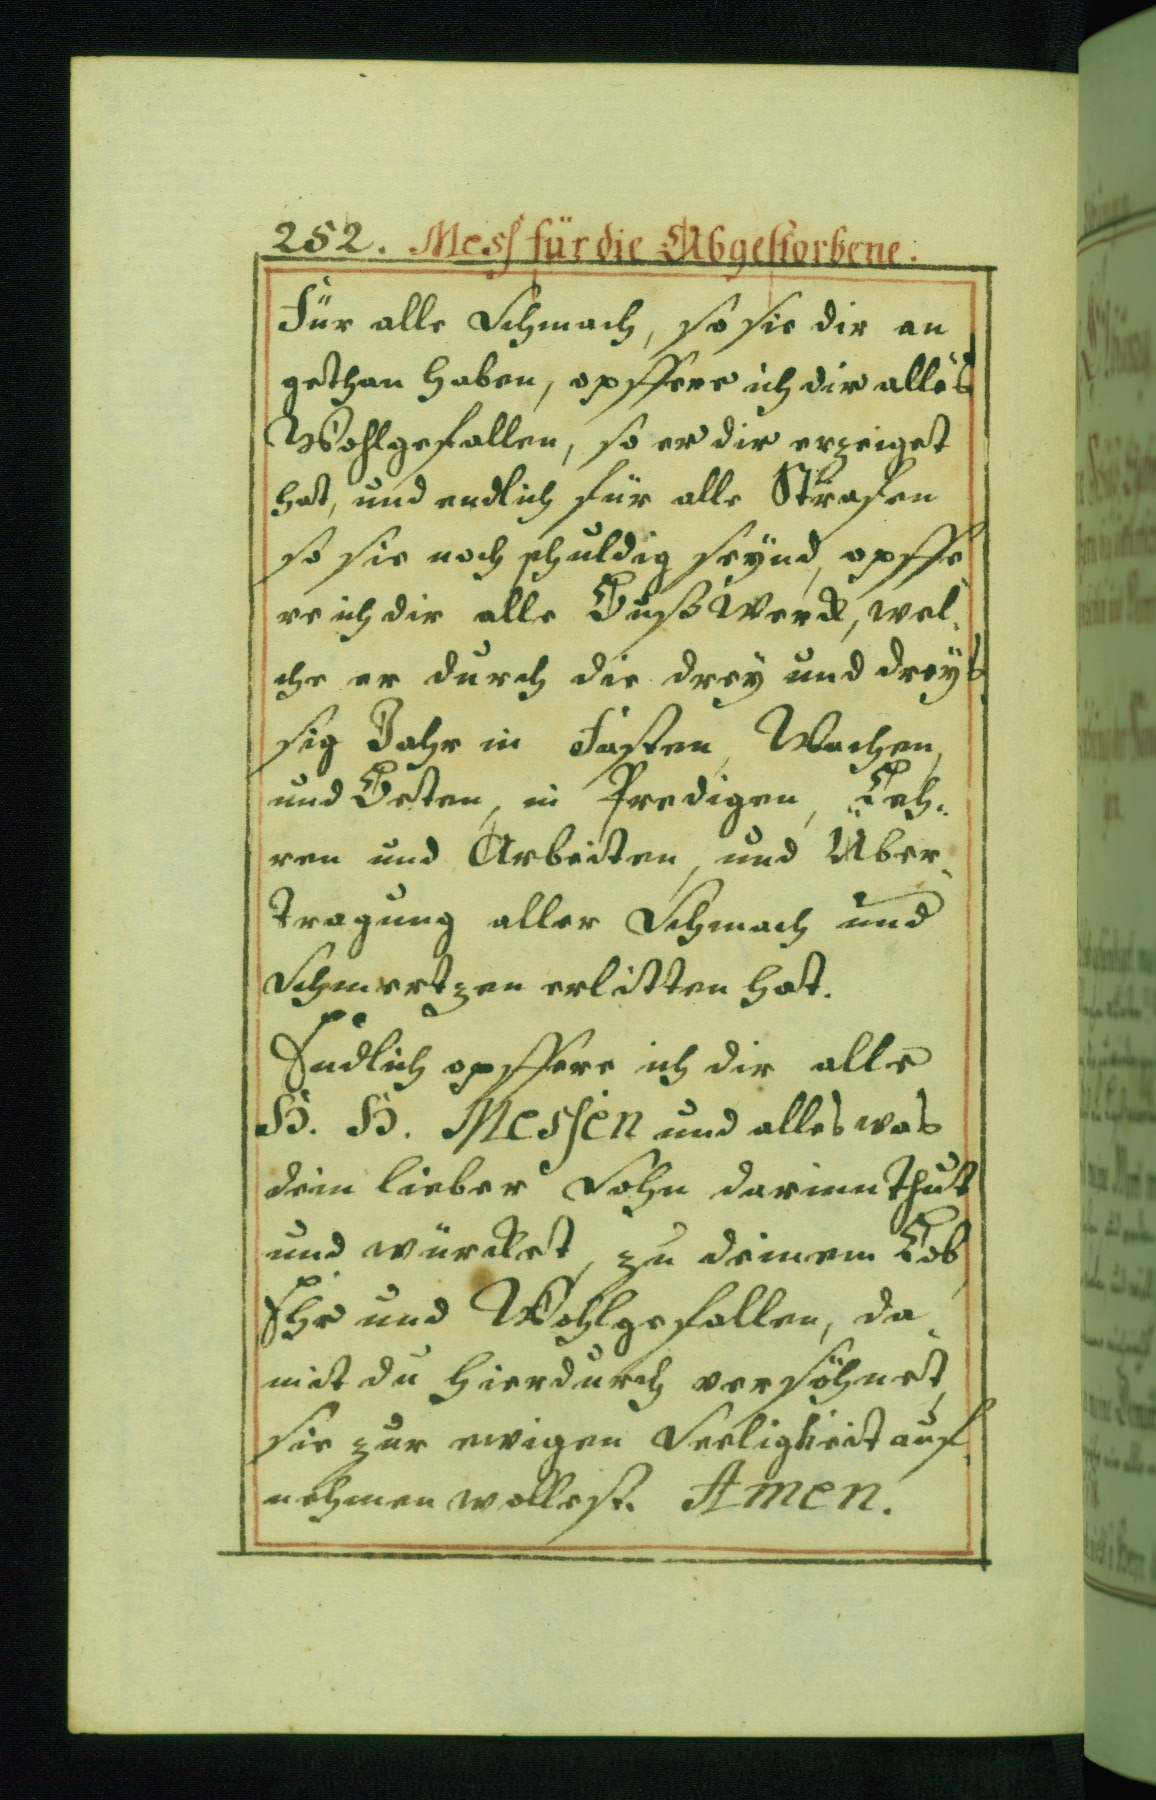 252. Mess für die Abgestorbene.
Für alle Schmach, so sie dir an
gethan haben, opffere ich dir alles
Wohlgefallen, so er dir erzeiget
hat, und endlich für alle Strafen
so sie noch schuldig seÿnd, opffe
re ich dir alle Bußwerck, wel¬
che er durch die dreÿ und dreÿs
sig Jahr in Fasten, Wachen,
und Betten, in Predigen, Leh¬
ren und Arbeiten, und Über¬
tragung aller Schmach und
Schmertzen erlitten hat.
Endlich opffere ich dir alle
H. H. Messen und alles was
dein lieber Sohn darinn thut
und würcket, zu deinem Lob
Ehr und Wohlgefallen, da¬
mit du hierdurch versöhnet,
sie zur ewigen Seeligkeit auf¬
nehmen wollest. Amen.